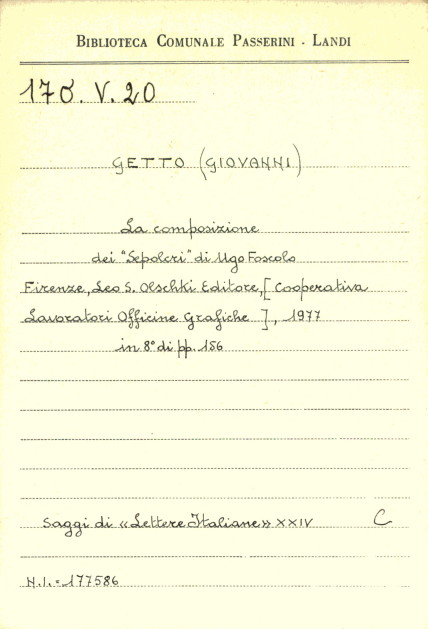 BIBLIOTECA COMUNALE PASSERINI - LANDI
170. V. 20
GETTO (GIOVANNI)
La composizione
dei "Sepolcri" di Ugo Foscolo
Firenze, Leo S. Olschki Editore, [Cooperativa
Lavoratori Officine Grafiche], 1977
in 8° di pp. 156
Saggi di «Lettere Italiane» XXIV C
N.I. = 177586